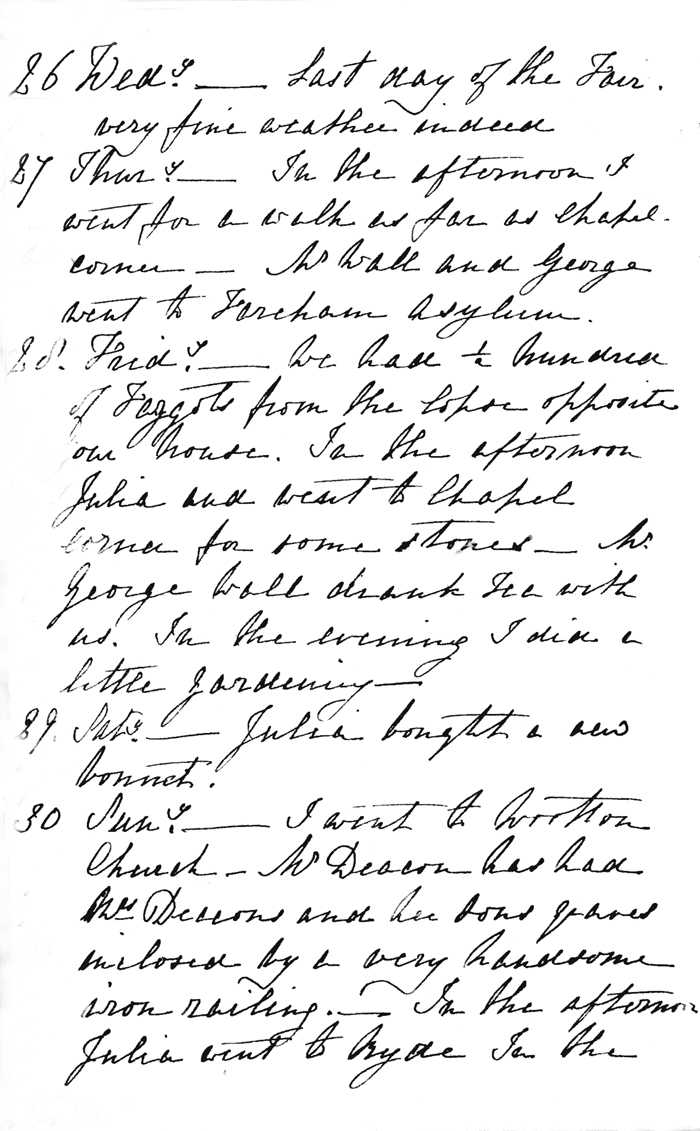 26 Wedy. — Last day of the Fair.
very fine weather indeed
27 Thury. — In the afternoon I
went for a walk as far as Chapel-
corner — Mr Wall and George
went to Fareham Asylum.
28. Fridy. — We had ½ hundred
of Faggots from the Copse opposite
our house. In the afternoon
Julia and went to Chapel
corner for some stones — Mr.
George Wall drank tea with
us. In the evening I did a
little gardening —
29. Saty. — Julia bought a new
bonnet.
30 Suny. — I went to Wootton
Church — Mr Deacon has had
Mrs Deacons and her sons graves
inclosed by a very handsome
iron railing. — In the afternoon
Julia went to Ryde In the